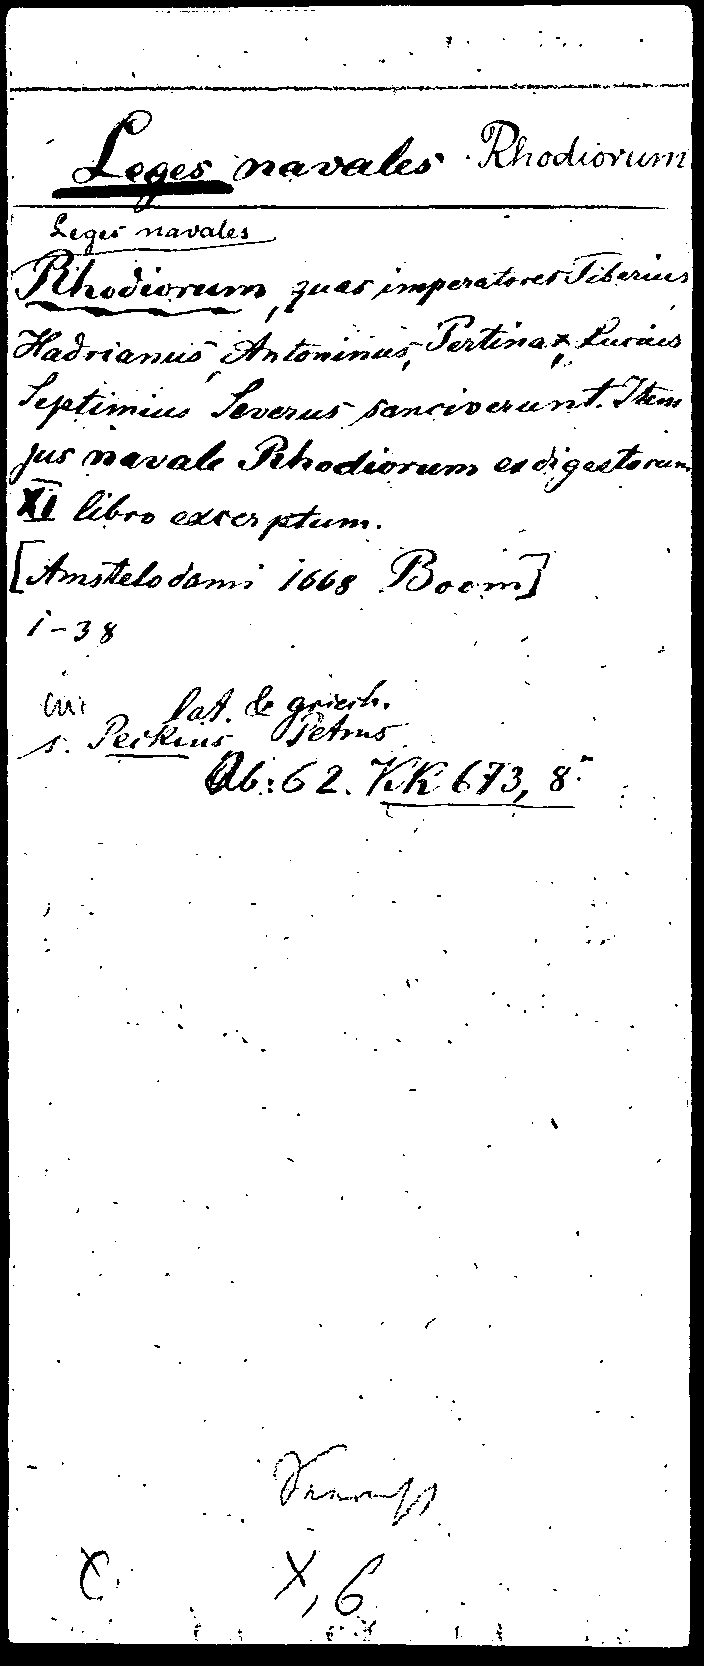 Leges navales Rhodiorum
Leges navales
Rhodiorum, quas imperatores Tiberius,
Hadrianus, Antoninus, Pertinax, Lucius
Septimius Severus sanciverunt. Item
jus navale Rhodiorum ex digestorum
XI libro excerptum.
[Amstelodami 1668 Boom]
1-38
in: lat. & griech.
s. Peckius Petrus
Ab: 62. KK 673, 8°
X, 6